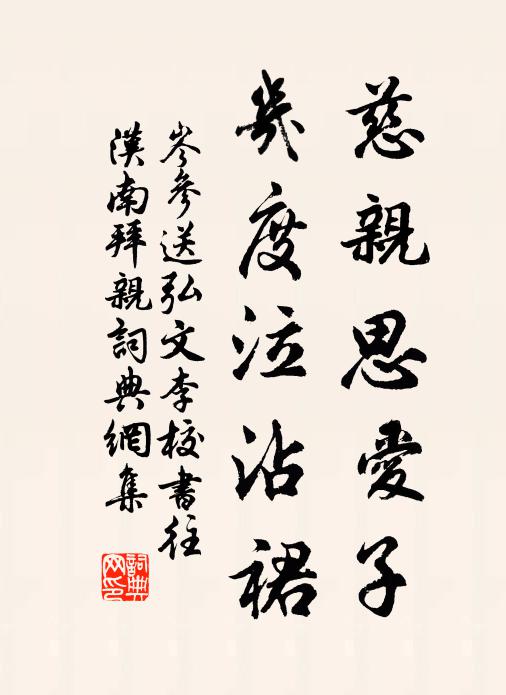 慈親思愛子
幾度泣沾裙
岑參送弘文李校書往
漢南拜親詞典網集
詞典網印